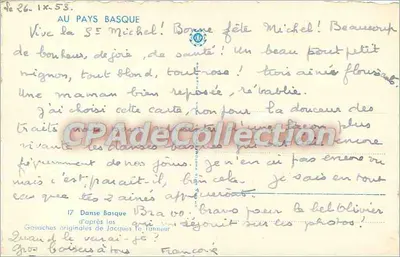 le 26.IX.53.
AU PAYS BASQUE
Vive la St Michel! Bonne fête Michel! Beaucoup
de bonheur, de joie, de santé! Un beau petit
mignon, tout blond, tout rose! trois aînés florissants
Une maman bien reposée, rétablie.
J'ai choisi cette carte, non pour la douceur des
traits
vivante les danses basques
de nos jours. Je n'en ai pas encore vu
mais c'est, paraît-il, bien cela. Je sais en tout
cas que les 2 aînés apprécieront.
CPADeCollection.com
17 Danse Basque
d'après les
Gouaches originales de Jacques Le Tanneur
Bravo, bravo pour le bel Olivier
qui se réjouit sur les photos!
Quand le verai-je?
Gros baisers à tous Françoise